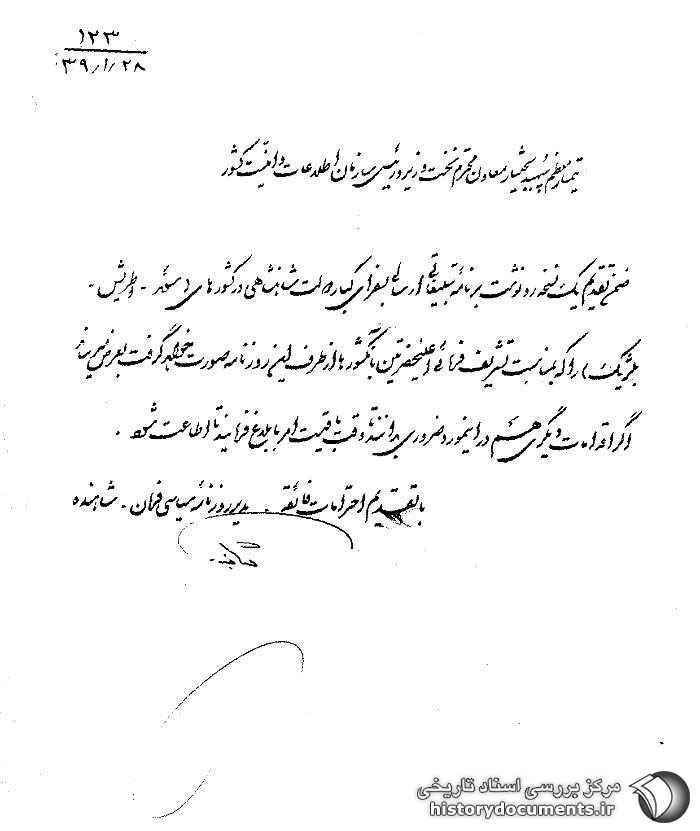 ۱۲۳
۳۹/۱/۲۸
تیمسار معظم سپهبد بختیار معاون محترم نخست وزیر و رئیس سازمان اطلاعات و امنیت کشور
ضمن تقدیم یک نسخه رونوشت برنامه تبلیغاتی ارسالی بسفرای کبار دولت شاهنشاهی در کشورهای (سوئد - اطریش -
بلژیک) را که بمناسبت تشریف فرمائی اعلیحضرتین بآنکشورها از طرف این روزنامه صورت خواهد گرفت بعرض میرساند
اگر اقدامات دیگری هم در اینمورد ضروری بدانند تا وقت باقیست امر بابلاغ فرمایند تا اطاعت شود.
با تقدیم احترامات فائقه - مدیر روزنامه سیاسی فرمان - شاهنده
مرکز بررسی اسناد تاریخی
historydocuments.ir